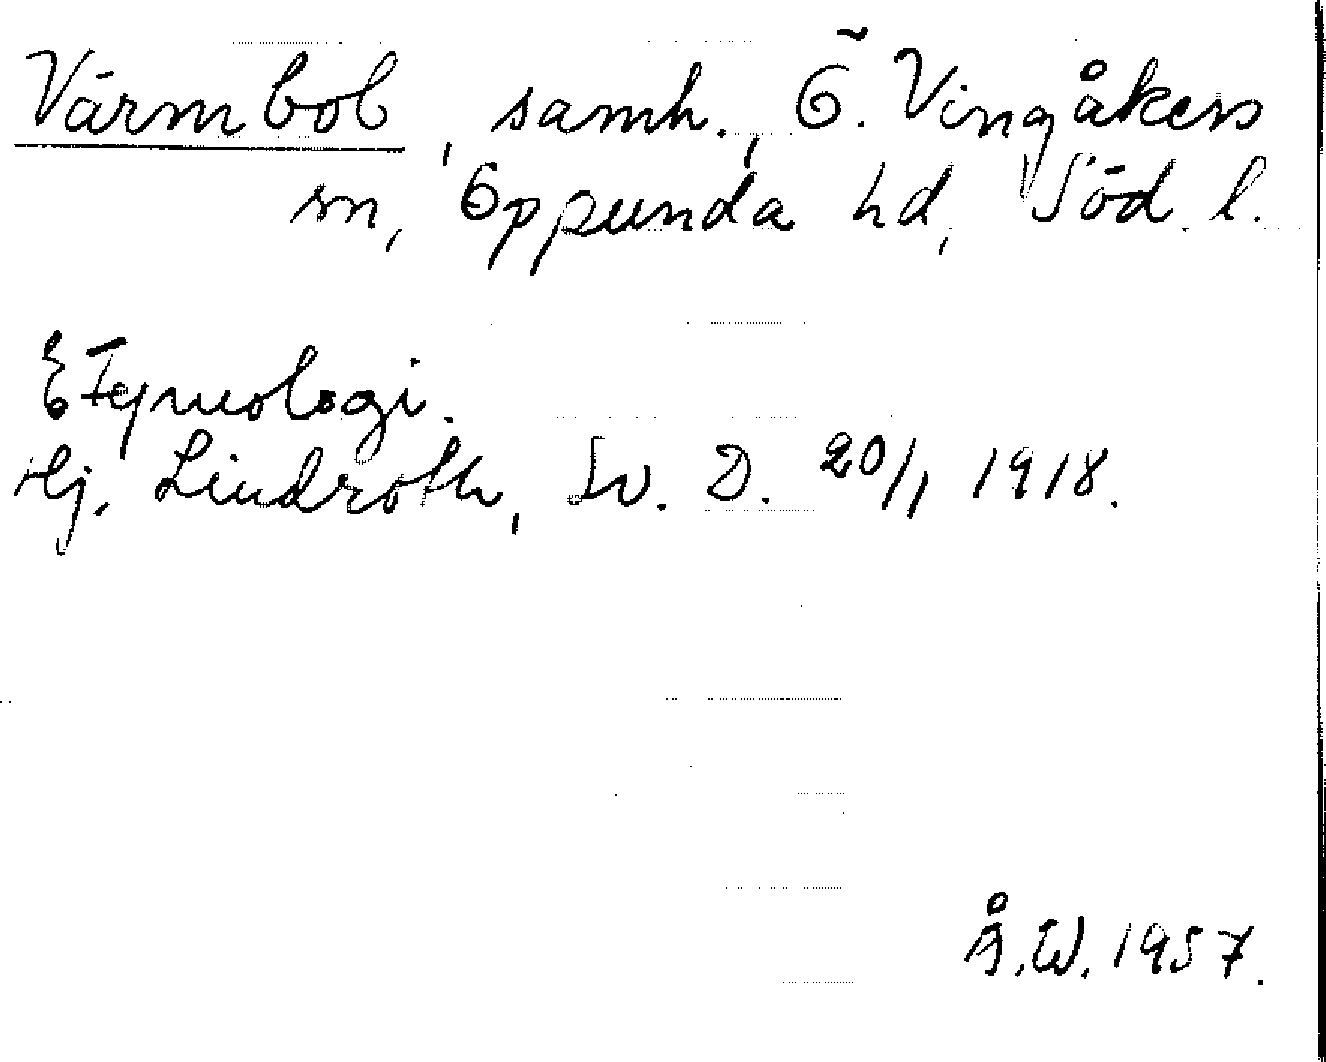 Värmbol, samh., Ö. Vingåkers
sn, Oppunda hd, Söd. l.
Etymologi.
Hj. Lindroth, Sv. D. 20/1 1918.
Å.W. 1957.